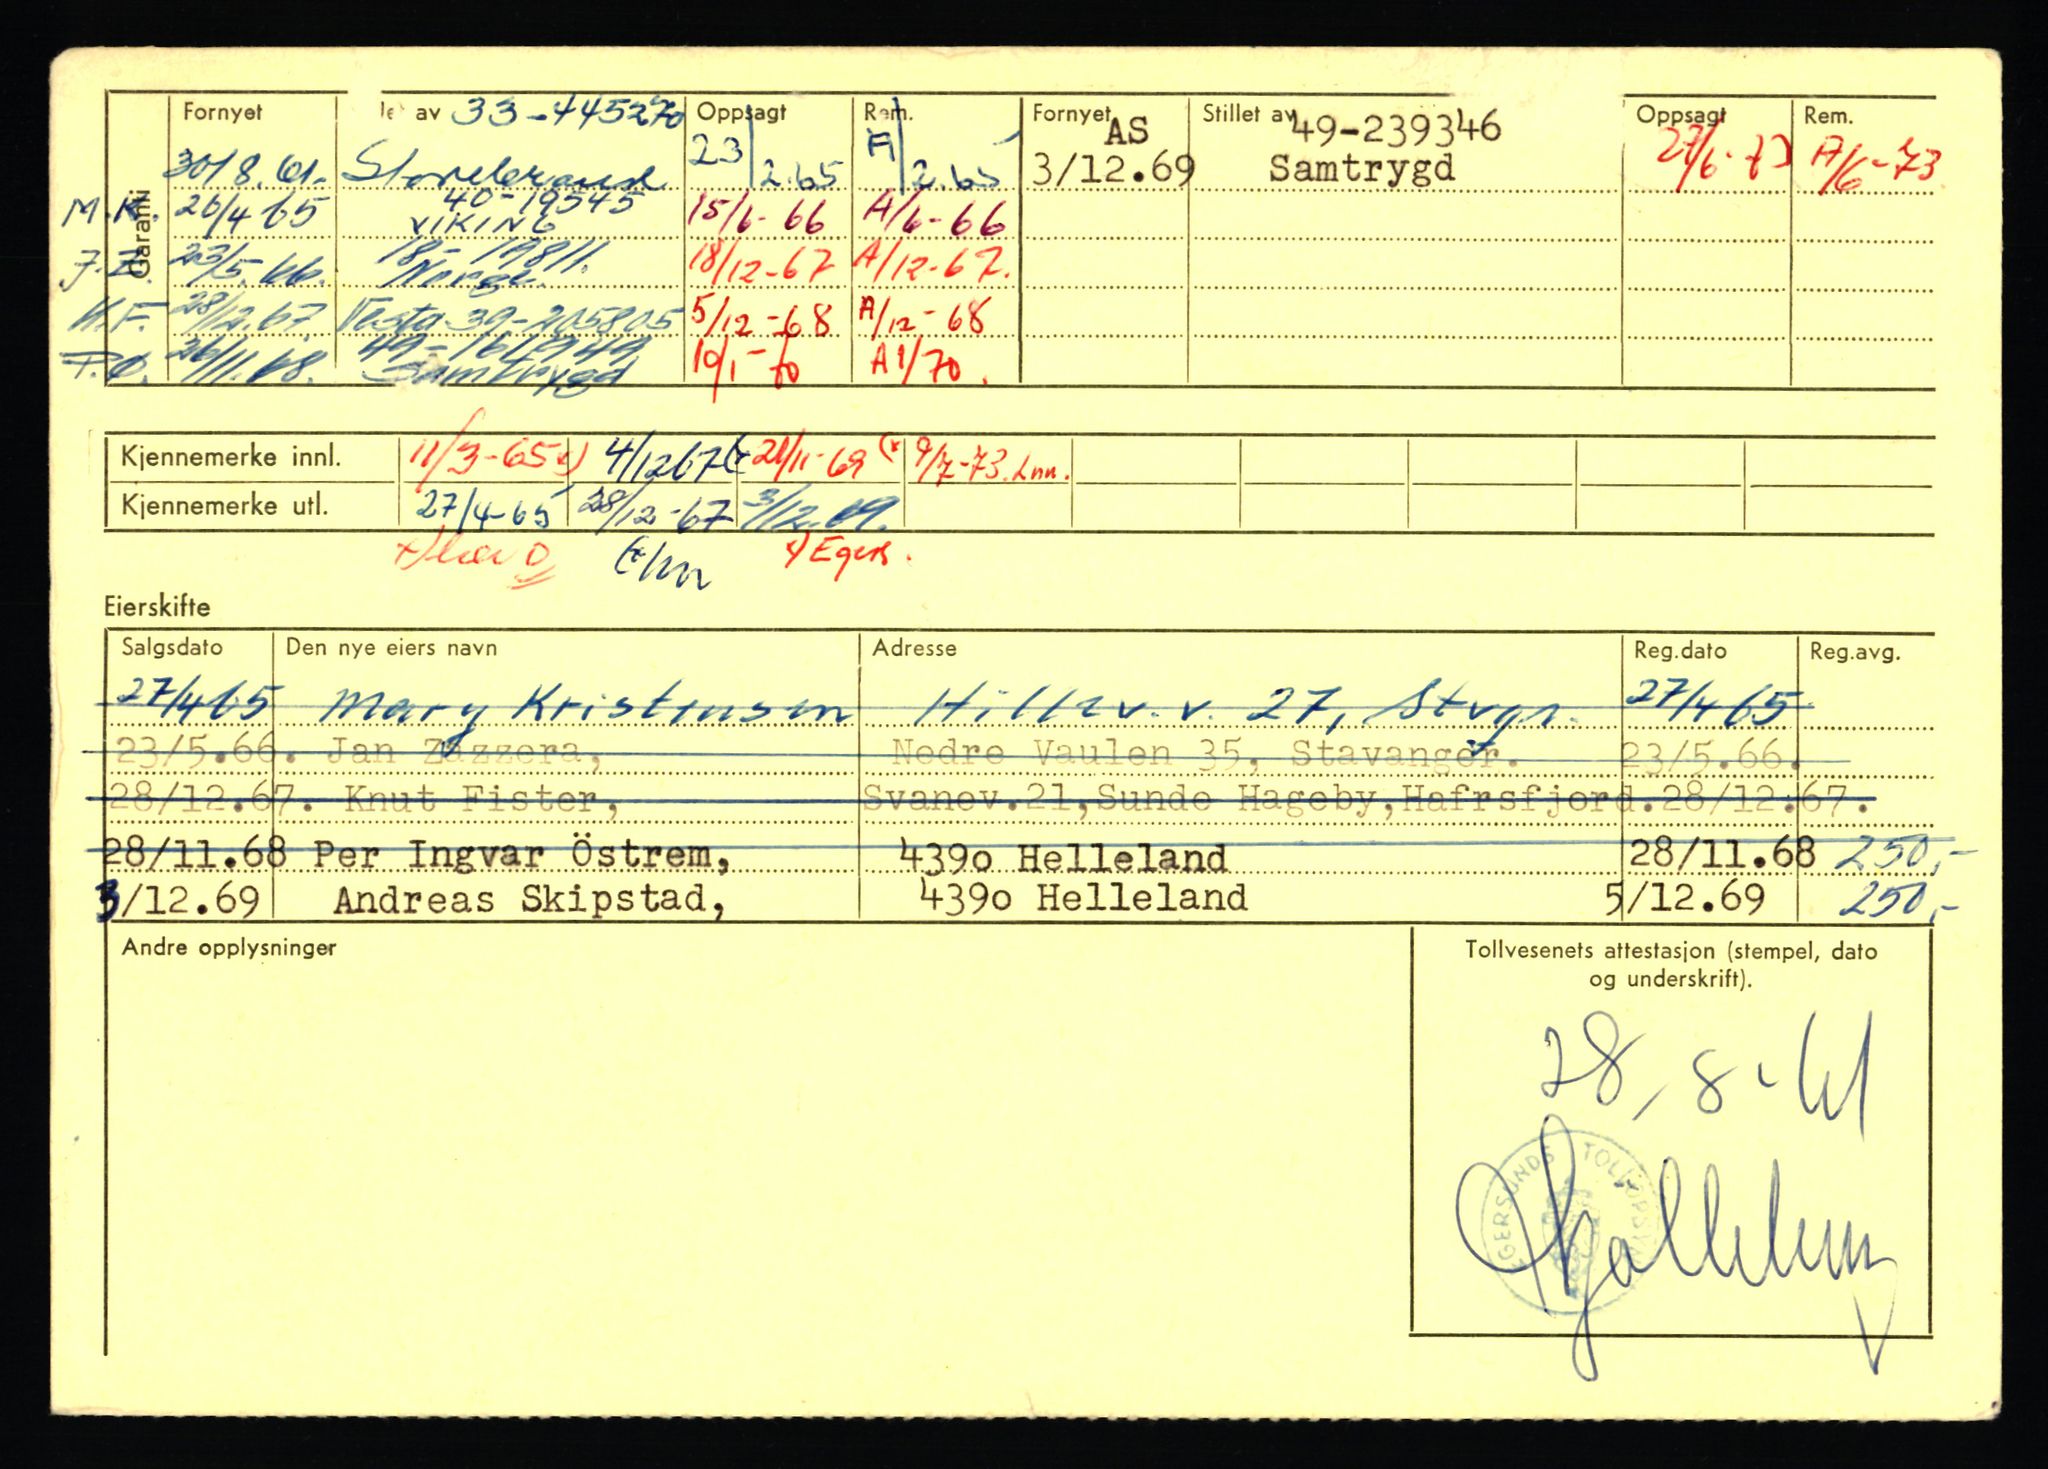 Fornyet av 33-445270 Oppsagt Rem. Fornyet Stillet av 49-239346 Oppsagt Rem.
30/8.61. Storebrand 23/2.65 A/2.65 AS 3/12.69 Samtrygd 27/6-73 A/6-73
Garanti
M.K. 26/4 65 40-19545 VIKING 15/6-66 A/6-66
J.Z. 23/5.66. 18-19811. Norge. 18/12-67 A/12-67.
K.F. 28/12.67 Vesta 39-205805 5/12-68 A/12-68
P.Ø. 26/11.68. Samtrygd 19/1-70 A 1/70.
Kjennemerke innl. 11/3-65 x) 4/12 67 (x 21/11-69 (x 9/7-73. Inn.
Kjennemerke utl. 27/4-65 28/12-67 3/12.69.
x) Egers.
Eierskifte
Salgsdato Den nye eiers navn Adresse Reg.dato Reg.avg.
27/4 65 Mary Kristensen Hillev.v. 27, Stvgr. 27/4 65
23/5.66. Jan Zazzera, Nedre Vaulen 35, Stavanger. 23/5.66.
28/12.67. Knut Fister, Svanev.21,Sunde Hageby,Hafrsfjord. 28/12.67.
28/11.68 Per Ingvar Östrem, 439o Helleland 28/11.68 250,-
3/12.69 Andreas Skipstad, 439o Helleland 5/12.69 250,-
Andre opplysninger
Tollvesenets attestasjon (stempel, dato
og underskrift).
28,8-61
EGERSUNDS TOLLOPPSYN